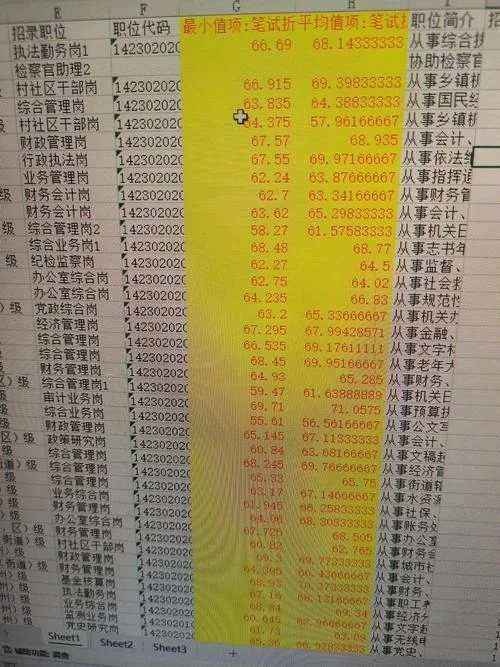 E F G H I
招录职位 职位代码 最小值项:笔试折 平均值项:笔试 职位简介 招
执法勤务岗1 142302020 66.69 68.14333333 从事综合执
检察官助理2 协助检察官
村社区干部岗 142302020 66.915 69.39833333 从事乡镇机
综合管理岗 142302020 63.835 64.38833333 从事国民经
级 村社区干部岗 142302020 64.375 57.96166667 从事乡镇机
财政管理岗 142302020 67.57 68.935 从事会计、
行政执法岗 142302020 67.55 69.97166667 从事依法
业务管理岗 142302020 62.24 63.87666667 从事指挥通
级 财务会计岗 142302020 62.7 63.34166667 从事财务管
财务会计岗 142302020 63.62 65.29833333 从事会计、
级 综合管理岗2 142302020 58.27 61.57583333 从事机关日
综合业务岗1 142302020 68.48 68.77 从事志书年
级 纪检监察岗 142302020 62.27 64.5 从事监督、
办公室综合岗 142302020 62.75 64.02 从事社会救
办公室综合岗 142302020 64.235 66.83 从事规范性
）级 党政综合岗 142302020 63.2 65.33666667 从事机关办
经济管理岗 142302020 67.295 67.99428571 从事金融、
级 综合管理岗 142302020 66.535 69.17611111 从事文字材
级 财务管理岗 142302020 68.45 69.95166667 从事老年大
区）级 综合管理岗1 142302020 64.93 65.285 从事财务、
级 审计业务岗 142302020 59.47 61.63888889 从事机关日
综合业务岗 142302020 69.71 71.0575 从事预算执
级 财政管理岗 142302020 55.61 56.56166667 从事公文写
区）级 政策研究岗 142302020 65.145 67.11333333 从事会计、
级 综合管理岗 142302020 60.84 63.68166667 从事文稿起
街道）级 综合管理岗 142302020 68.245 69.76666667 从事经济管
）级 业务综合岗 142302020 65.33 65.75 从事街道辖
级 综合管理岗 142302020 63.17 67.14666667 从事水资源
级 办公室综合岗 142302020 61.945 66.25833333 从事社保、
区）级 财务管理岗 142302020 64.06 68.30333333 从事账务处
级 村社区干部岗 142302020 67.725 68.505 从事办公室
）级 财政管理岗 142302020 60.82 62.765 从事财务会
街道）级 财务管理岗 142302020 69.3 69.77333333 从事城市社
）级 基金核算岗 142302020 64.305 从事会计、
州）级 执法勤务岗 142302020 68.93 70.37333333 从事财务
级 业务综合岗 142302020 67.16 68.13166667 从事职工
州）级 监测业务岗 142302020 68.84 69.34 从事经济
州）级 党史研究岗 142302020 60.645 62.96666667 从事文字
61.73 63.09 从事无线电
65.36 66.92833333 从事党史、
Sheet1 Sheet2 Sheet3 +
辅助功能: 调查